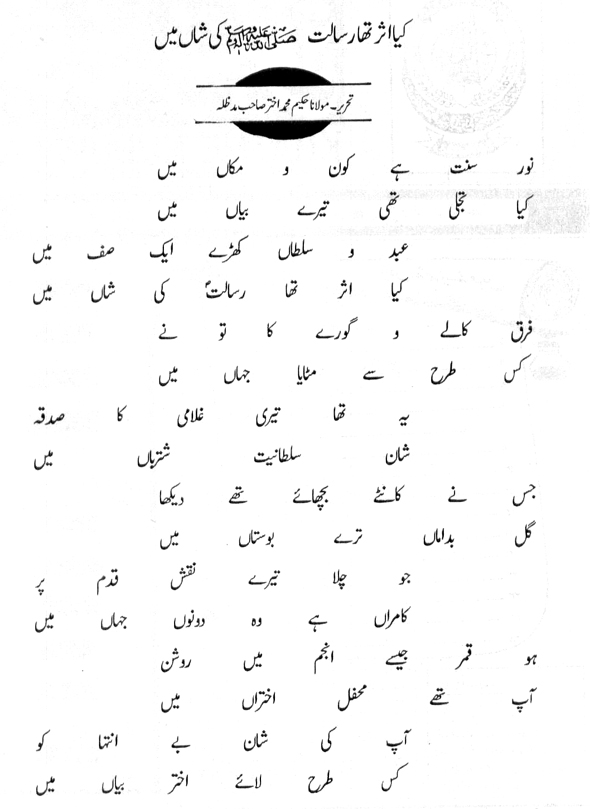 کیا اثر تھا رسالت ﷺ کی شاں میں
تحریر۔ مولانا حکیم محمد اختر صاحب مدظلہ
نور سنت ہے کون و مکاں میں
کیا تجلی تھی تیرے بیاں میں
عبد و سلطاں کھڑے ایک صف میں
کیا اثر تھا رسالتؐ کی شاں میں
فرق کالے و گورے کا تو نے
کس طرح سے مٹایا جہاں میں
یہ تھا تیری غلامی کا صدقہ
شان سلطانیت شترباں میں
جس نے کانٹے بچھائے تھے دیکھا
گل بداماں ترے بوستاں میں
جو چلا تیرے نقش قدم پر
کامراں ہے وہ دونوں جہاں میں
ہو قمر جیسے انجم میں روشن
آپ تھے محفل اختراں میں
آپ کی شان بے انتہا کو
کس طرح لائے اختر بیاں میں